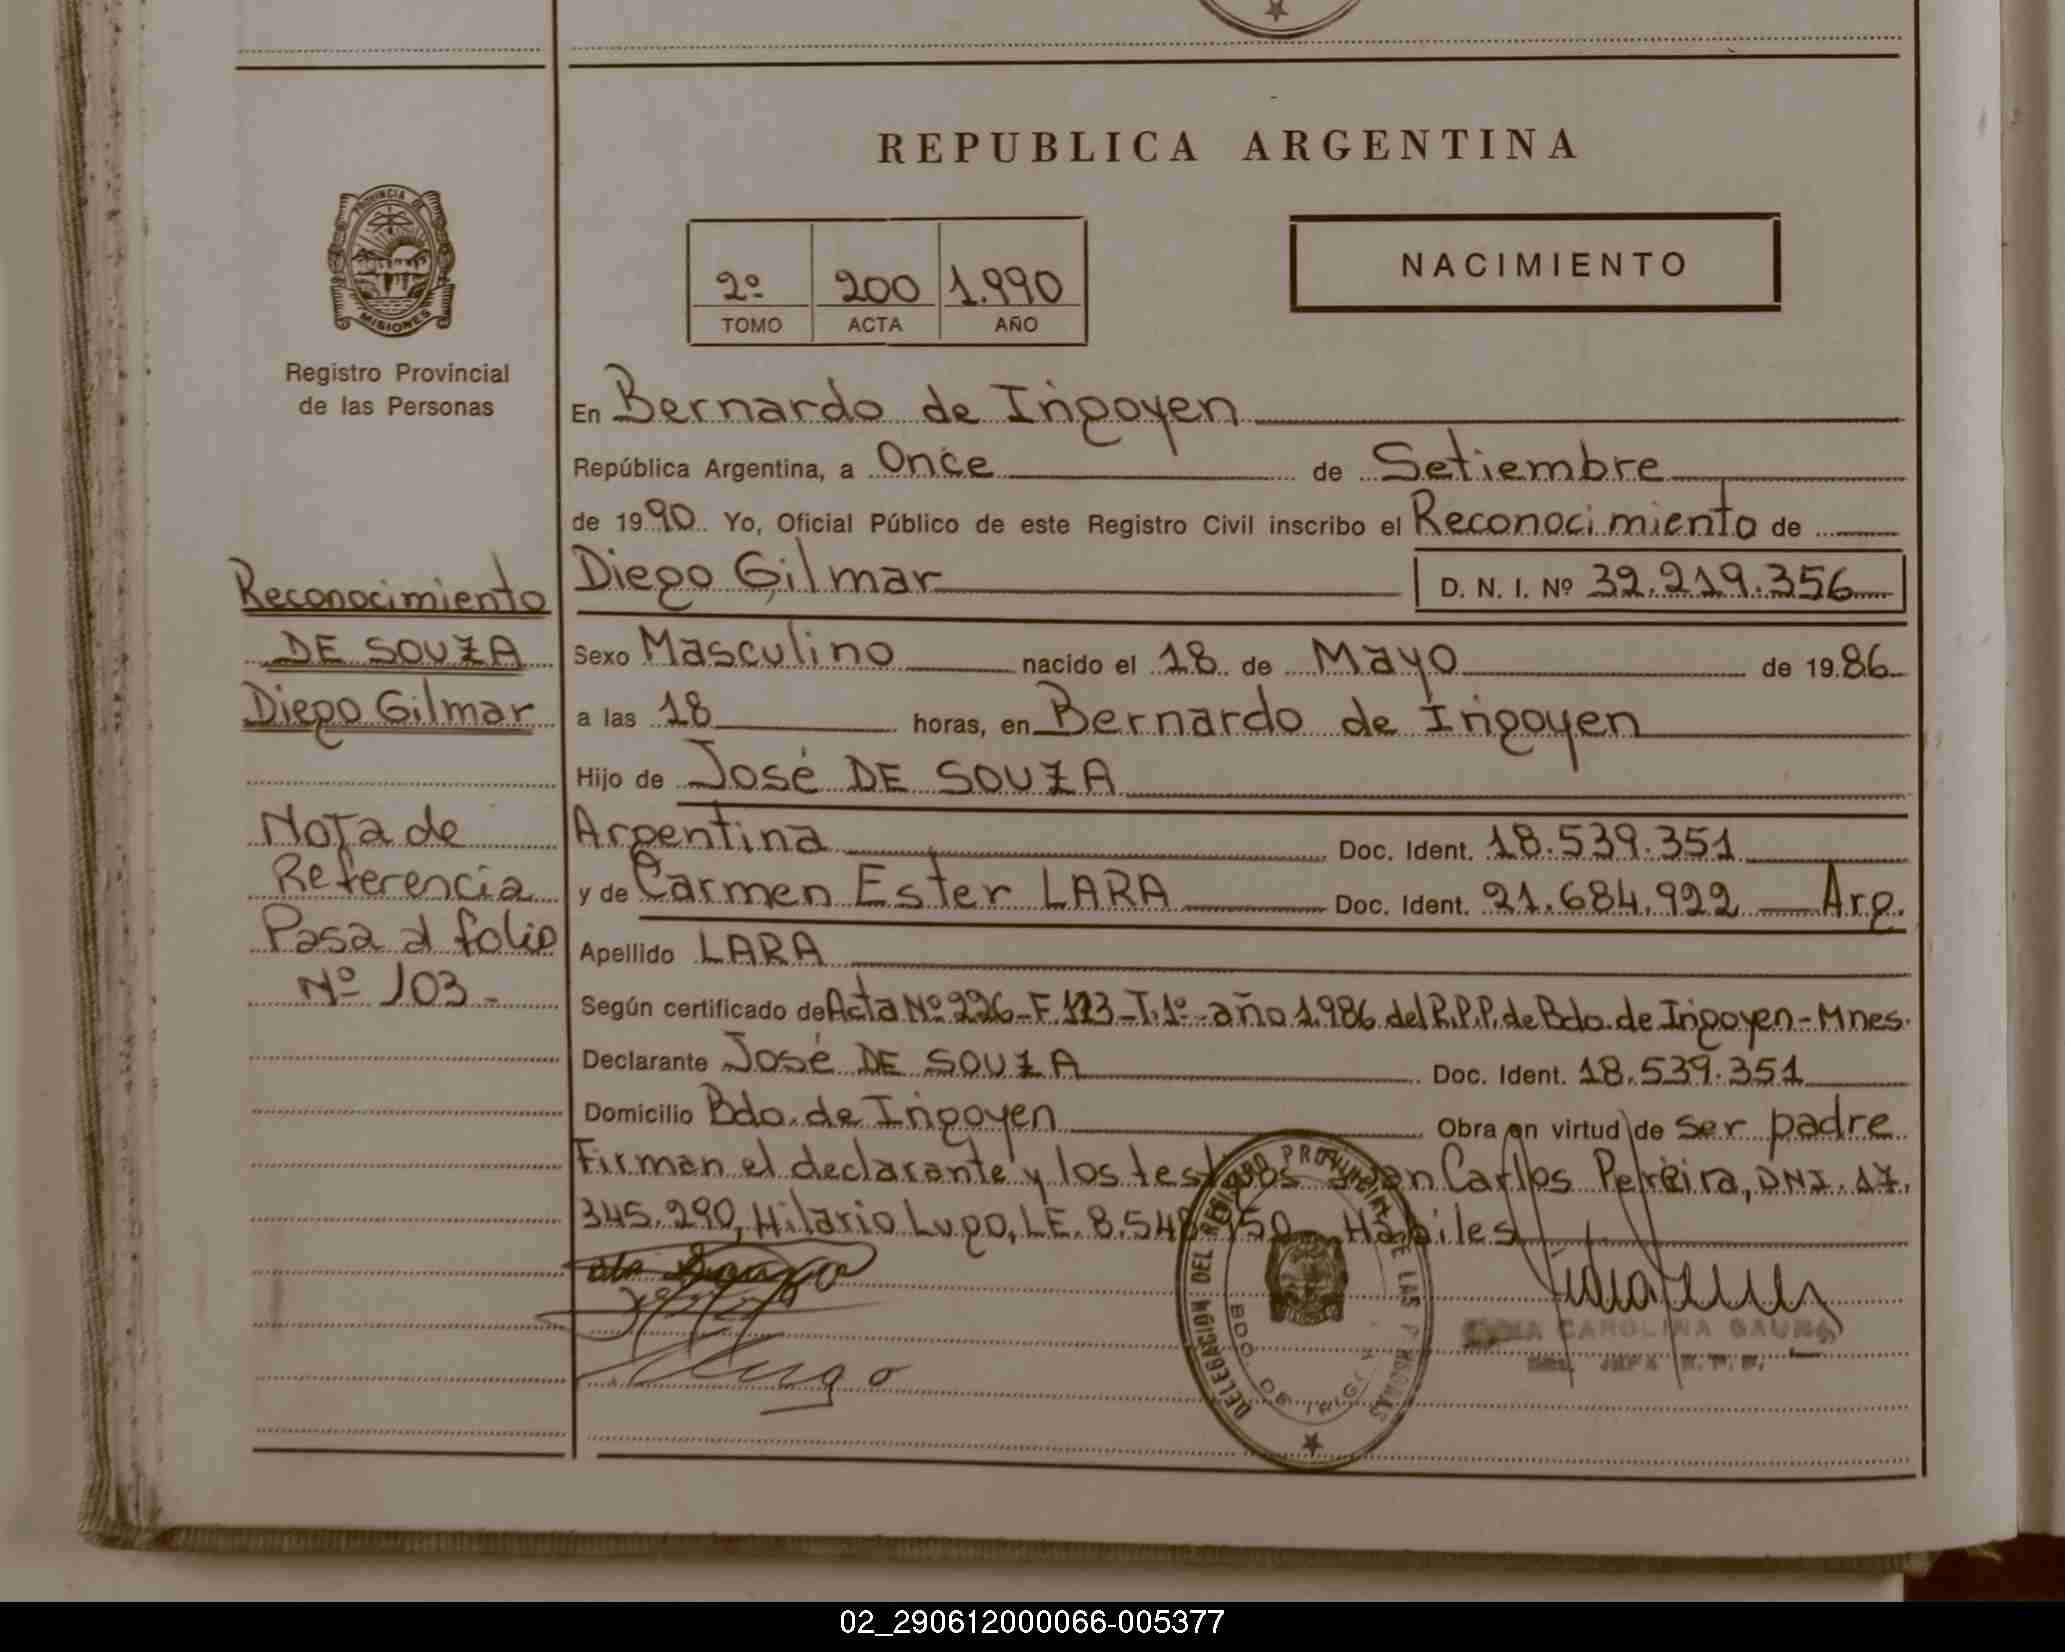 REPUBLICA ARGENTINA
PROVINCIA DE
MISIONES
Registro Provincial
de las Personas
2º 200 1.990
TOMO ACTA AÑO
NACIMIENTO
En Bernardo de Irigoyen
República Argentina, a Once de Setiembre
de 1990 Yo, Oficial Público de este Registro Civil inscribo el Reconocimiento de
Diego Gilmar D. N. I. Nº 32.219.356
Sexo Masculino nacido el 18 de Mayo de 1986
a las 18 horas, en Bernardo de Irigoyen
Hijo de José DE SOUZA
Argentina Doc. Ident. 18.539.351
y de Carmen Ester LARA Doc. Ident. 21.684.922 Arg.
Apellido LARA
Según certificado de Acta Nº 226-F.113-T.1º- año 1.986 del R.P.P. de Bdo. de Irigoyen - Mnes.
Declarante José DE SOUZA Doc. Ident. 18.539.351
Domicilio Bdo. de Irigoyen Obra en virtud de ser padre
Firman el declarante y los testigos Juan Carlos Pereira, DNI. 17.
345.290, Hilario Lugo, LE. 8.548.950 Hábiles
Reconocimiento
DE SOUZA
Diego Gilmar
Nota de
Referencia
Pasa al folio
Nº 103-
DELEGACION DEL REGISTRO PROVINCIAL DE LAS PERSONAS
BDO. DE IRIGOYEN
Lugo
CAROLINA
02_290612000066-005377